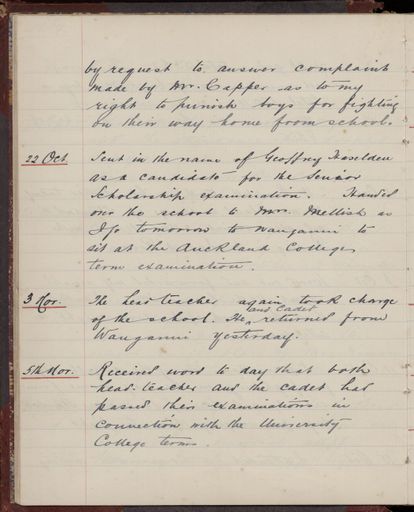 by request to answer complaint
made by Mr. Capper as to my
right to punish boys for fighting
on their way home from school.
22 Oct. Sent in the name of Geoffrey Haselden
as a candidate for the Senior
Scholarship examination. Handed
over the school to Mr. Mellish as
I go tomorrow to Wanganui to
sit at the Auckland College
term examination.
3 Nov. The head teacher again took charge
and Cadet
of the school. He returned from
Wanganui yesterday.
5th Nov. Received word to day that both
head-teacher and the cadet had
passed their examinations in
connection with the University
College terms.